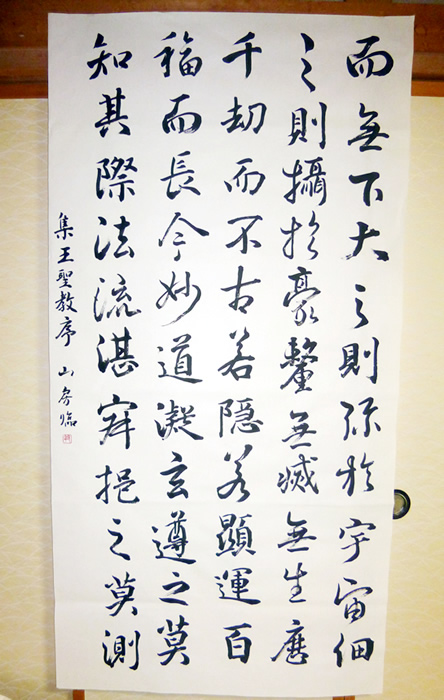 而無下大之則弥於宇宙細
之則攝於豪釐無滅無生歷
千劫而不古若隱若顯運百
福而長今妙道凝玄遵之莫
知其際法流湛寂挹之莫測
集王聖教序 山房臨